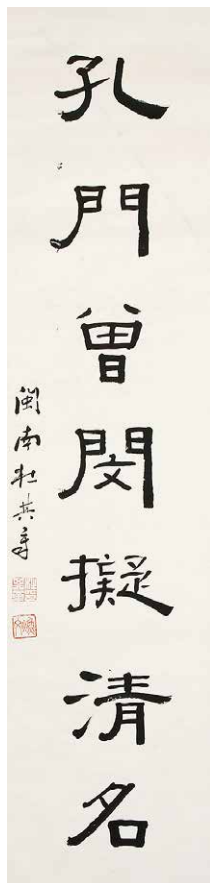 孔門曾閔擬清名
閩南杜其章